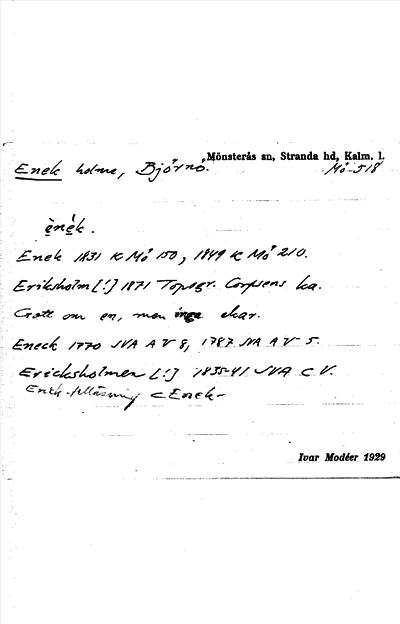 Mönsterås sn, Stranda hd, Kalm. l.
Enek holme, Björnö.
Mö 518
ènék.
Enek 1831 K Mö 150, 1849 K Mö 210.
Eriksholm [!] 1871 Topogr. Corpsens ka.
Gott om en, men inga ekar.
Eneck 1770 JVA A V 8, 1787 JVA A V 5.
Ericksholmen [!] 1835-41 JVA C V.
Enek- < Enek-
Ivar Modéer 1929